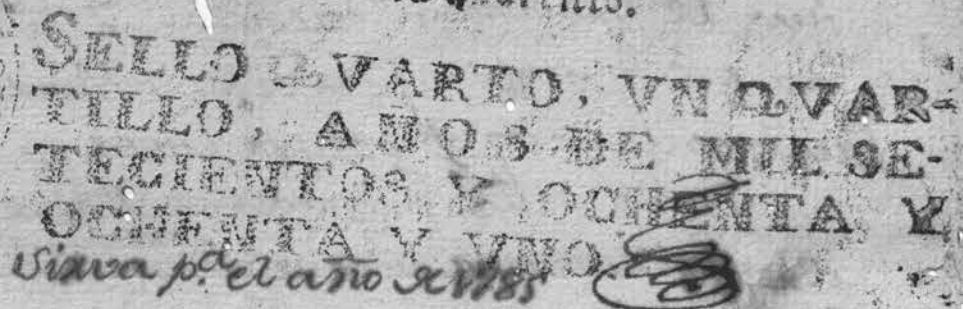 SELLO QVARTO, VN QVAR-
TILLO, AÑOS DE MIL SE-
TECIENTOS Y OCHENTA, Y
OCHENTA Y VNO
Sirva p.ª el año de 1785